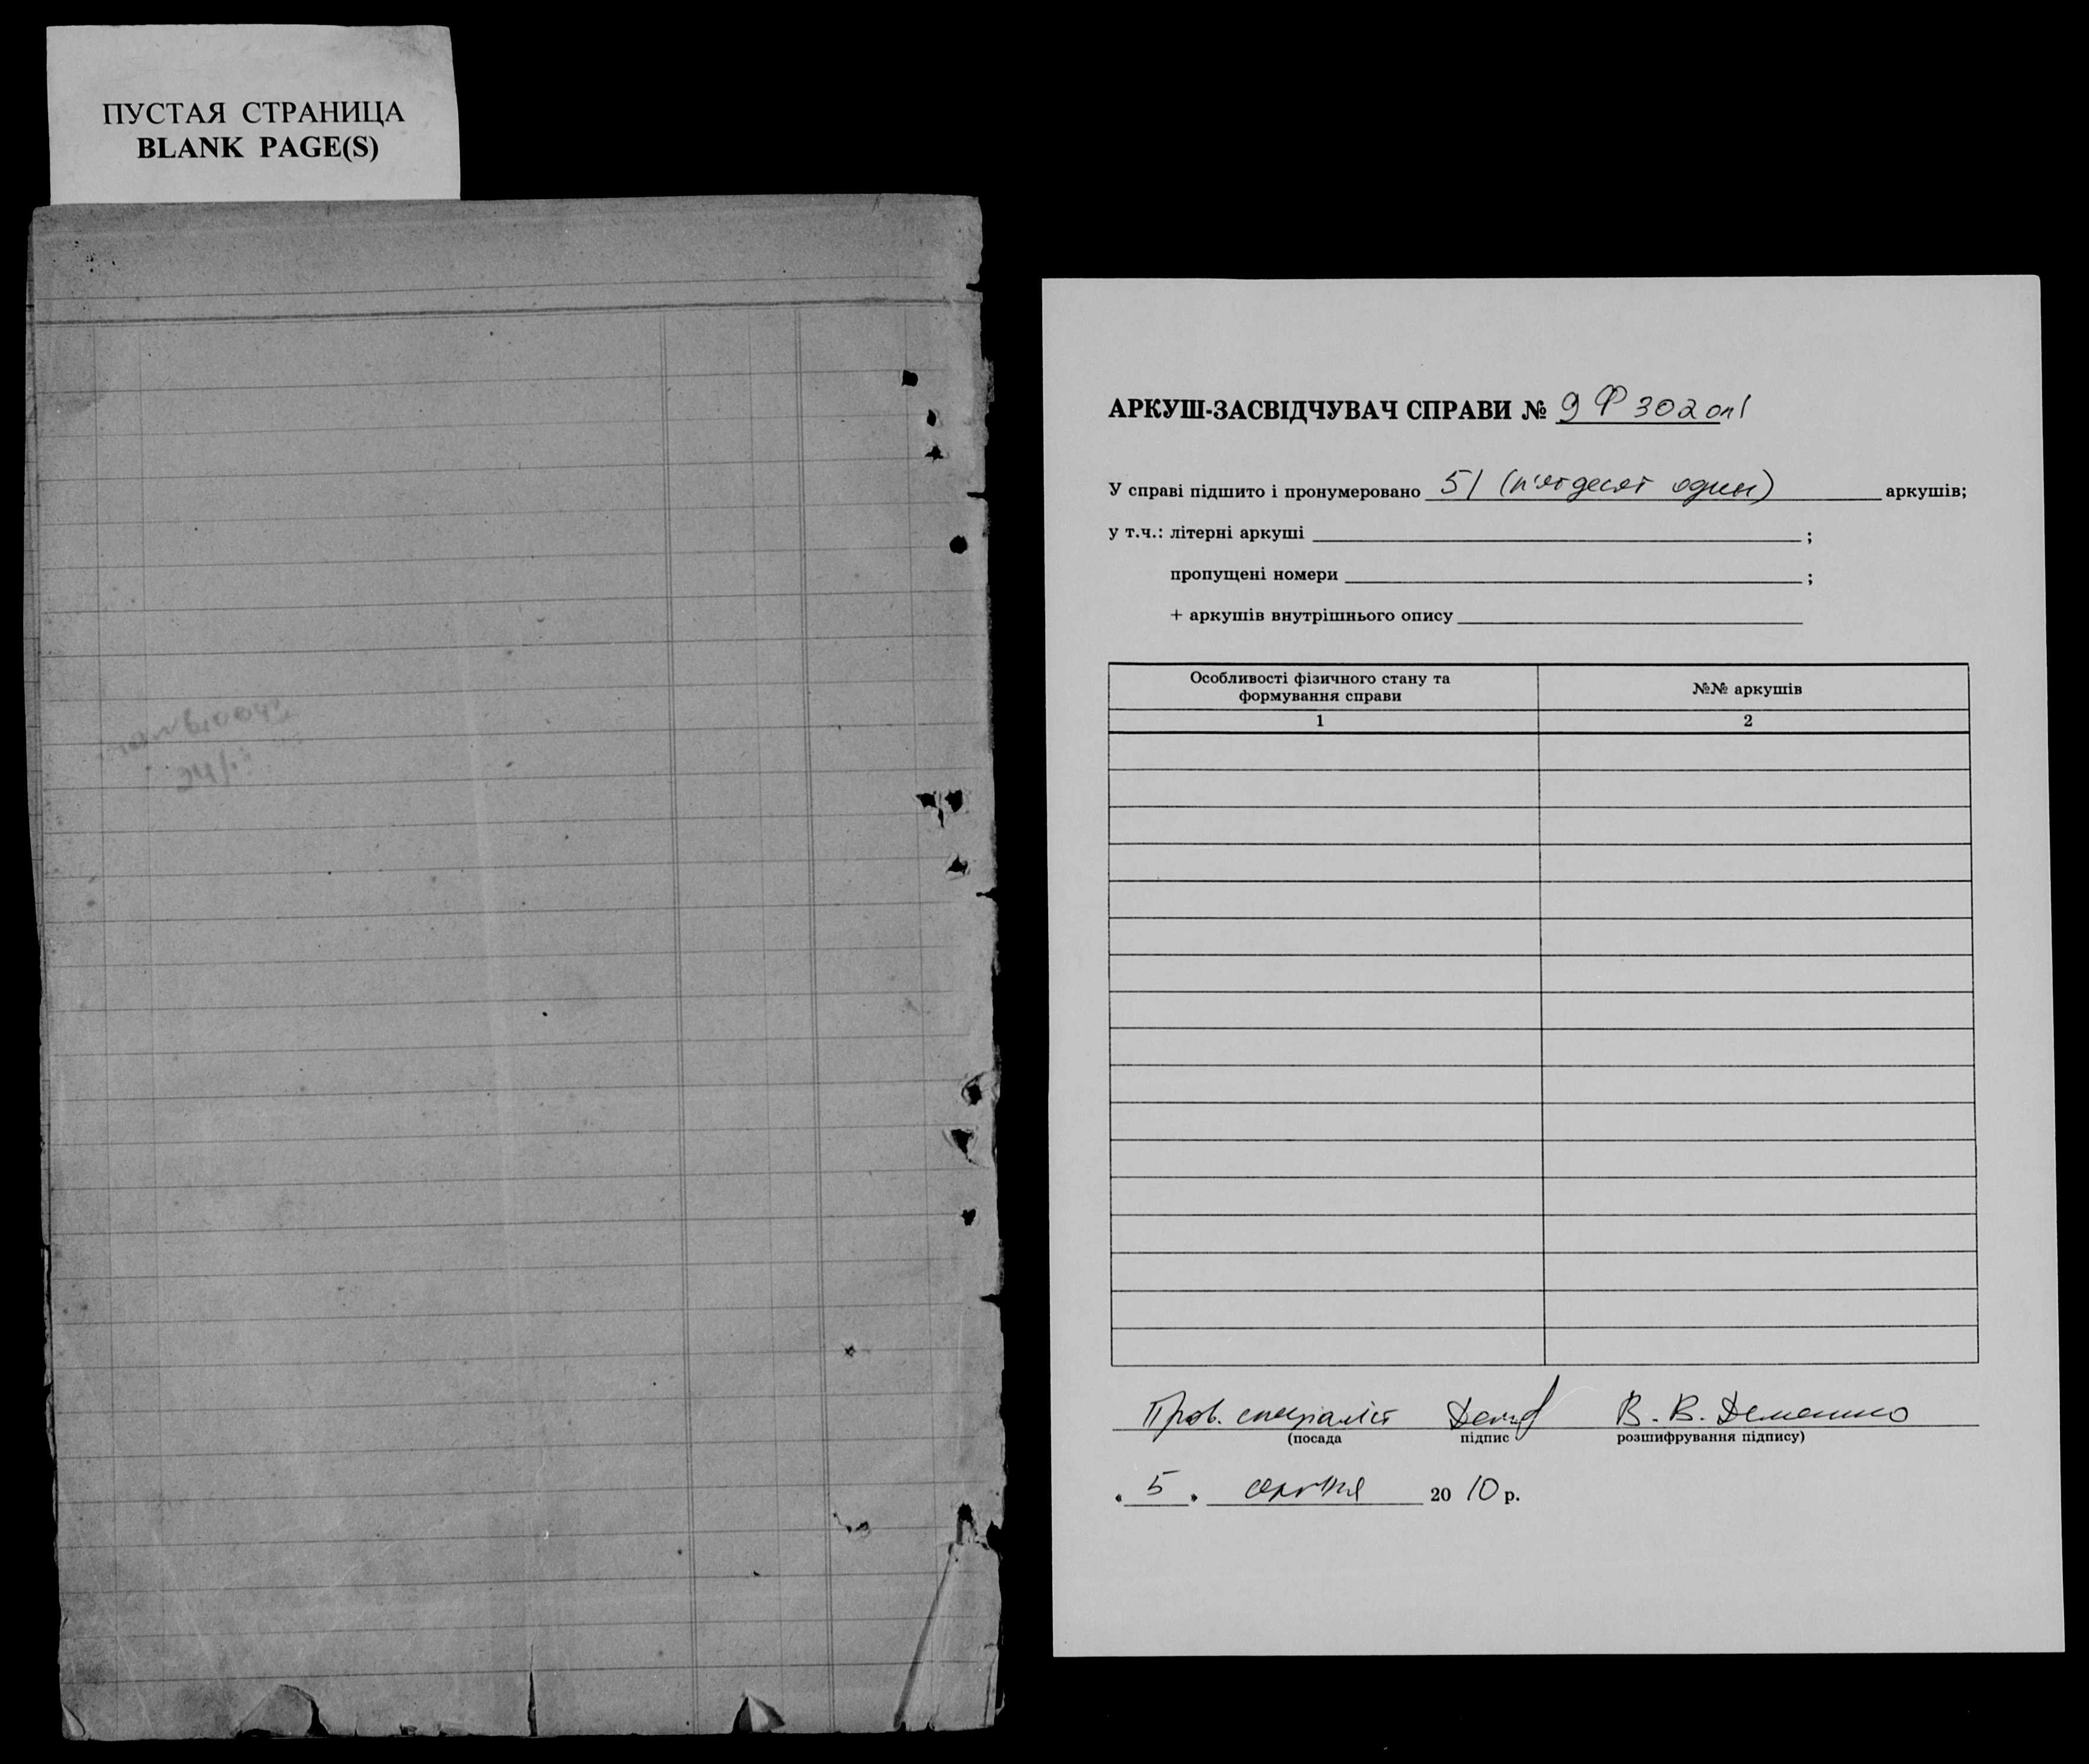 ПУСТАЯ СТРАНИЦА
BLANK PAGE(S)
АРКУШ-ЗАСВІДЧУВАЧ СПРАВИ № 9 Ф 302 оп 1
У справі підшито і пронумеровано 51 (п'ятдесят один) аркушів;
у т.ч.: літерні аркуші ;
пропущені номери ;
+ аркушів внутрішнього опису
Особливості фізичного стану та формування справи
№№ аркушів
1 2
Пров. спеціаліст В. В. Деменко
(посада підпис розшифрування підпису)
" 5 " серпня 20 10 р.